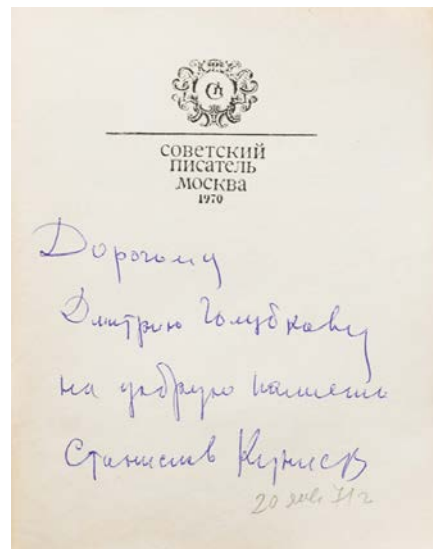 СП
СОВЕТСКИЙ
ПИСАТЕЛЬ
МОСКВА
1970
Дорогому
Дмитрию Голубкову
на добрую память
Станислав Куняев
20 янв 71 г